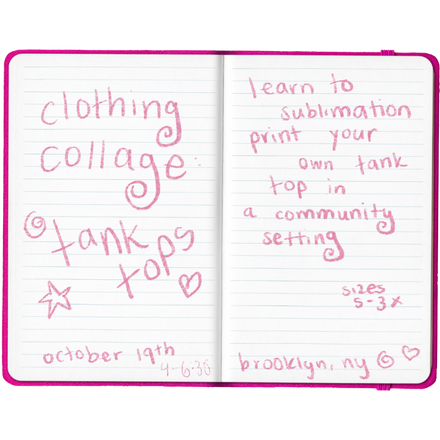 clothing
collage:
tank
tops
october 19th
4-6:30
learn to
sublimation
print your
own tank
top in
a community
setting
sizes
s-3x
brooklyn, ny